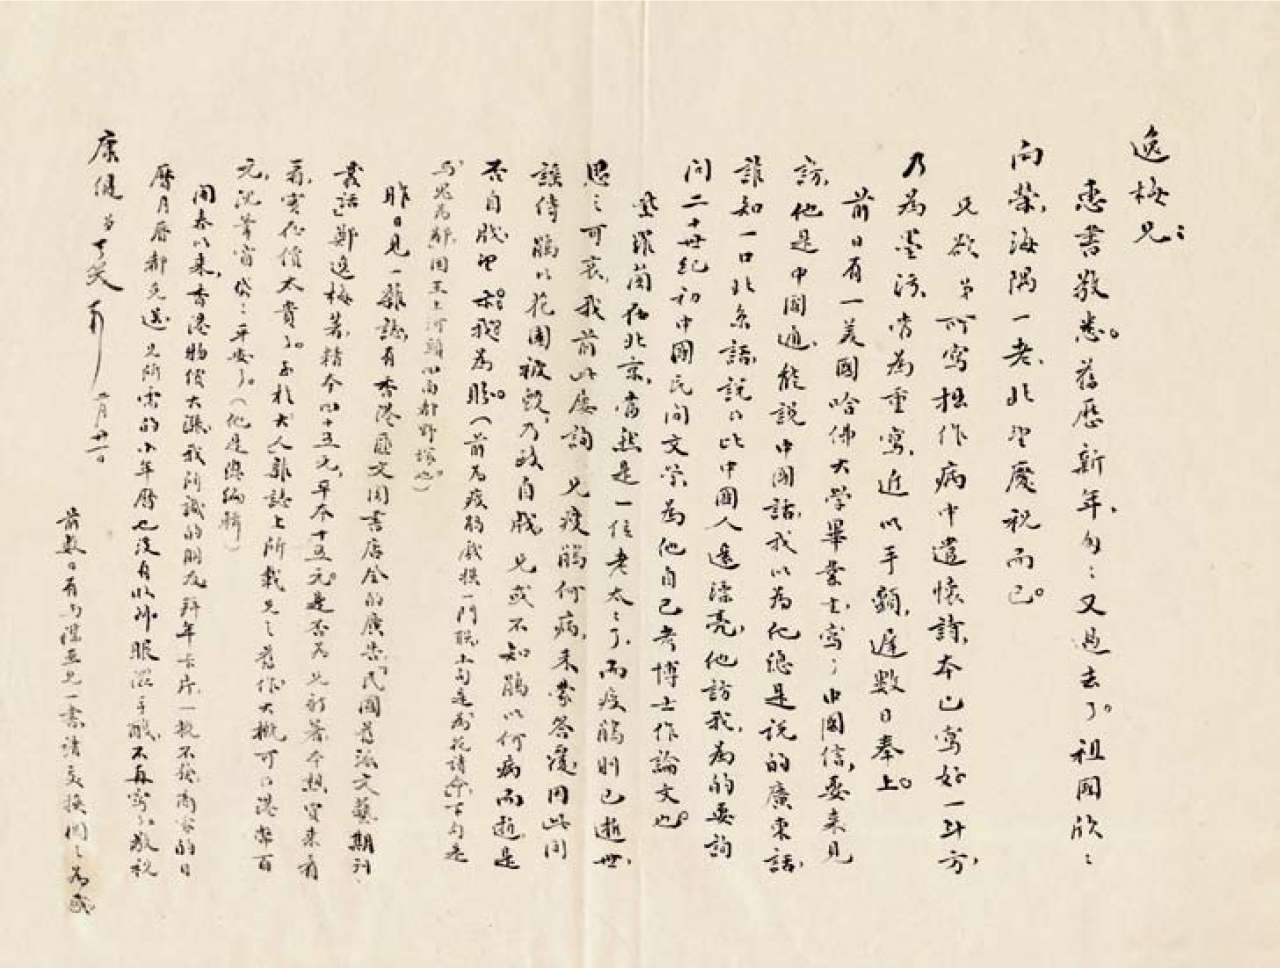 逸梅兄：
惠書敬悉。舊歷新年，匆匆又過去了。祖國欣欣
向榮，海隅一老，北望慶祝而已。
兄欲弟所寫拙作病中遣懷詩，本已寫好一斗方，
乃為墨污，當為重寫，近以手顫，遲數日奉上。
前日有一美國哈佛大學畢業士，寫了中國信，要來見
訪，他是中國通，能說中國話，我以為他總是說的廣東話，
誰知一口北京話，說得比中國人還漂亮，他訪我，為的要詢
問二十世紀初中國民間文學，為他自己考博士作論文也。
羅蘭在北京，當然是一位老太太了，而瘦鵑則已逝世，
思之可哀，我前此屢詢兄瘦鵑何病，未蒙答覆，因此間
謠傳鵑以花園被毀，乃致自戕，兄或不知鵑以何病而逝，是
否自戕，望示我為盼。（前為瘦鵑戲撰一門聯，上句是為花請命，下句是
昨日見一雜誌，有香港匯文閣書店全的廣告「民國舊派文藝期刊
叢話」鄭逸梅著，精本四十五元，平本十五元，是否為兄新著，本想買來看
看，實在價太貴了。至於大人雜誌上所載兄之舊作，大概可得港幣百
元，沈葦窗貸貸平安了。（他是與編輯）
開春以來，香港物價大漲，我所識的朋友，拜年卡片，一概不發，商家的日
曆月曆都免送，兄所需的小年曆也沒有收到，眼澀手戰，不再寫了，敬祝
康健　弟天笑　二月廿一日
前數日有與謀五兄一書，請交換閱之為感